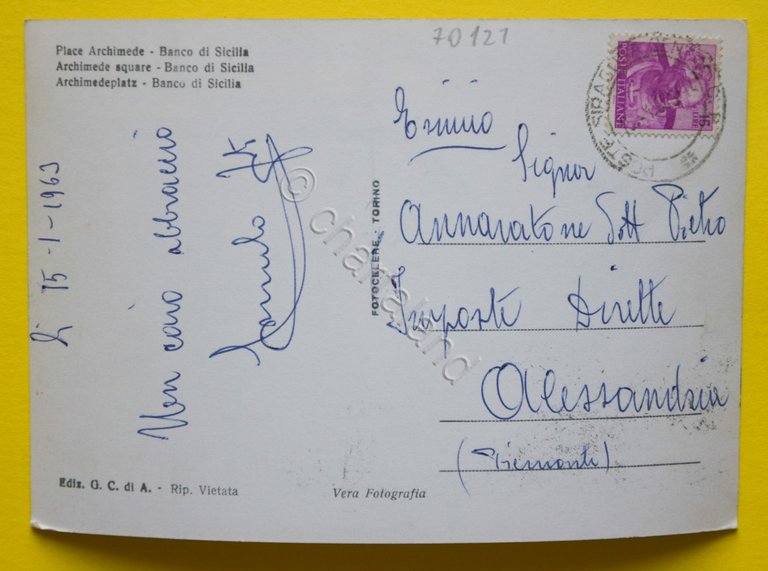 70121
Place Archimede - Banco di Sicilia
Archimede square - Banco di Sicilia
Archimedeplatz - Banco di Sicilia
POSTE ITALIANE
LIRE 15
POSTE
lì 15-1-1963
Un caro abbraccio
FOTOCELERE - TORINO
Signor
Annaratone Dott Pietro
Imposte Dirette
Alessandria
(Piemonte)
Ediz. G. C. di A. - Rip. Vietata
Vera Fotografia
© chartaland